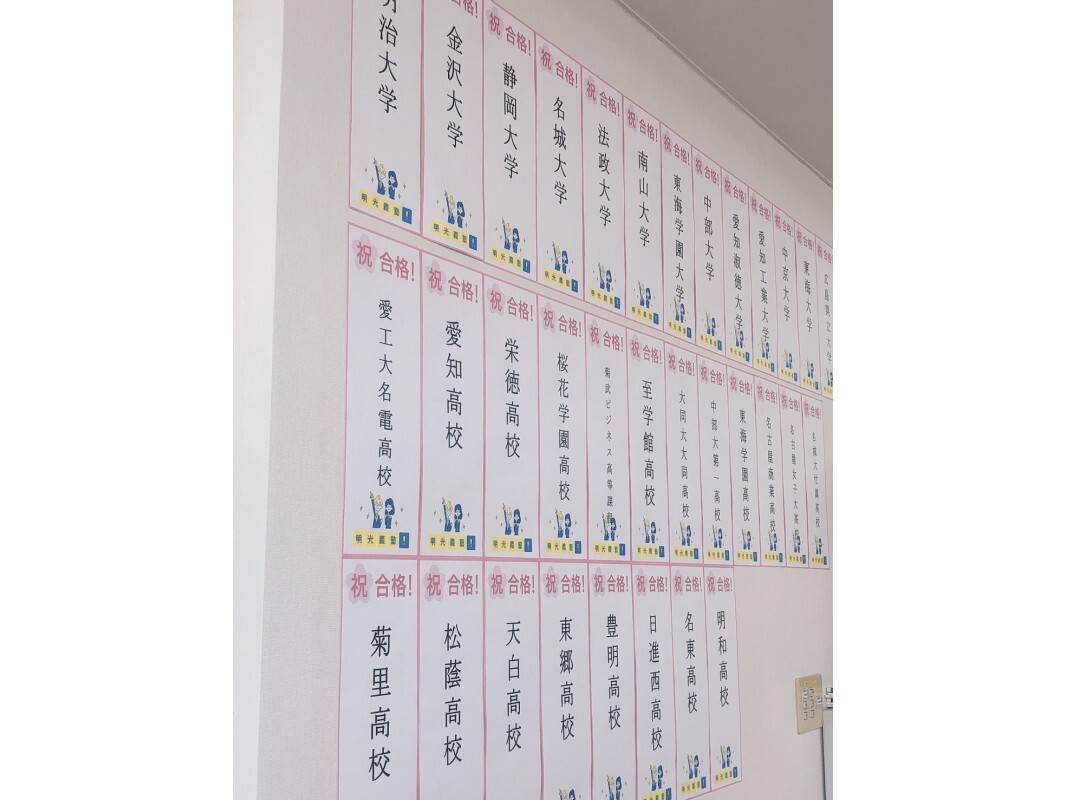 明治大学
明光義塾!
合格!
金沢大学
明光義塾!
祝 合格!
静岡大学
明光義塾!
祝 合格!
名城大学
明光義塾!
祝 合格!
法政大学
明光義塾!
祝 合格!
南山大学
明光義塾!
祝 合格!
東海学園大学
明光義塾!
祝 合格!
中部大学
明光義塾!
祝 合格!
愛知淑徳大学
明光義塾!
祝 合格!
愛知工業大学
明光義塾!
祝 合格!
中京大学
祝 合格!
東海大学
祝 合格
広島県立大学
祝 合格!
愛工大名電高校
明光義塾!
祝 合格!
愛知高校
明光義塾!
祝 合格!
栄徳高校
明光義塾!
祝 合格!
桜花学園高校
明光義塾!
祝 合格!
菊武ビジネス高等課程
明光義塾!
祝 合格!
至学館高校
明光義塾!
祝 合格!
大同大大同高校
明光義塾!
祝 合格!
中部大第一高校
明光義塾!
祝 合格!
東海学園高校
明光義塾!
祝 合格!
名古屋商業高校
明光義塾!
祝 合格!
名古屋女子大高校
明光義塾!
祝 合格!
名城大付属高校
明光義塾!
祝 合格!
菊里高校
祝 合格!
松蔭高校
祝 合格!
天白高校
祝 合格!
東郷高校
祝 合格!
豊明高校
祝 合格!
日進西高校
祝 合格!
名東高校
明光義塾!
祝 合格!
明和高校
明光義塾!